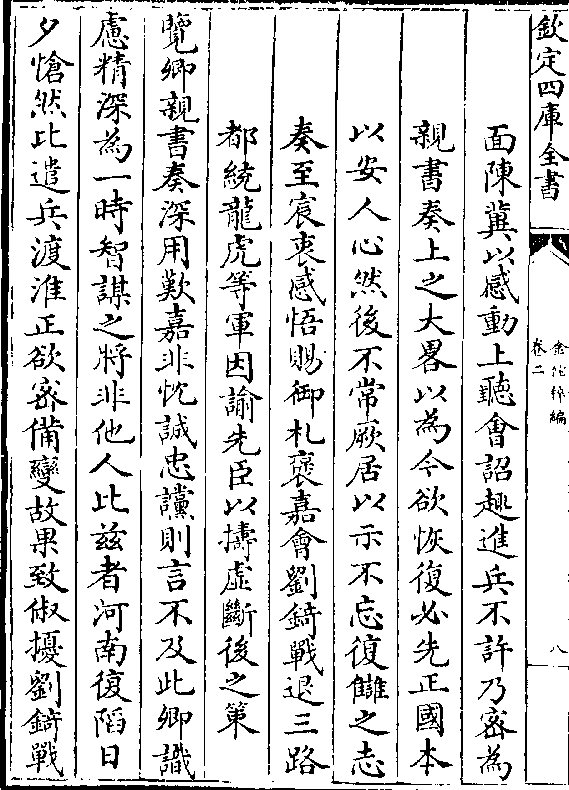 欽定四庫全書
金佗稡編
卷二
八
面陳冀以感動上聽會詔趣進兵不許乃密為
親書奏上之大畧以為今欲恢復必先正國本
以安人心然後不常厥居以示不忘復讎之志
奏至宸衷感悟賜御札褒嘉會劉錡戰退三路
都統龍虎等軍因諭先臣以擣虛斷後之策
覽卿親書奏深用歎嘉非忱誠忠讜則言不及此卿識
慮精深為一時智謀之將非他人比兹者河南復䧟日
夕愴然比遣兵渡淮正欲密備變故果致俶擾劉錡戰